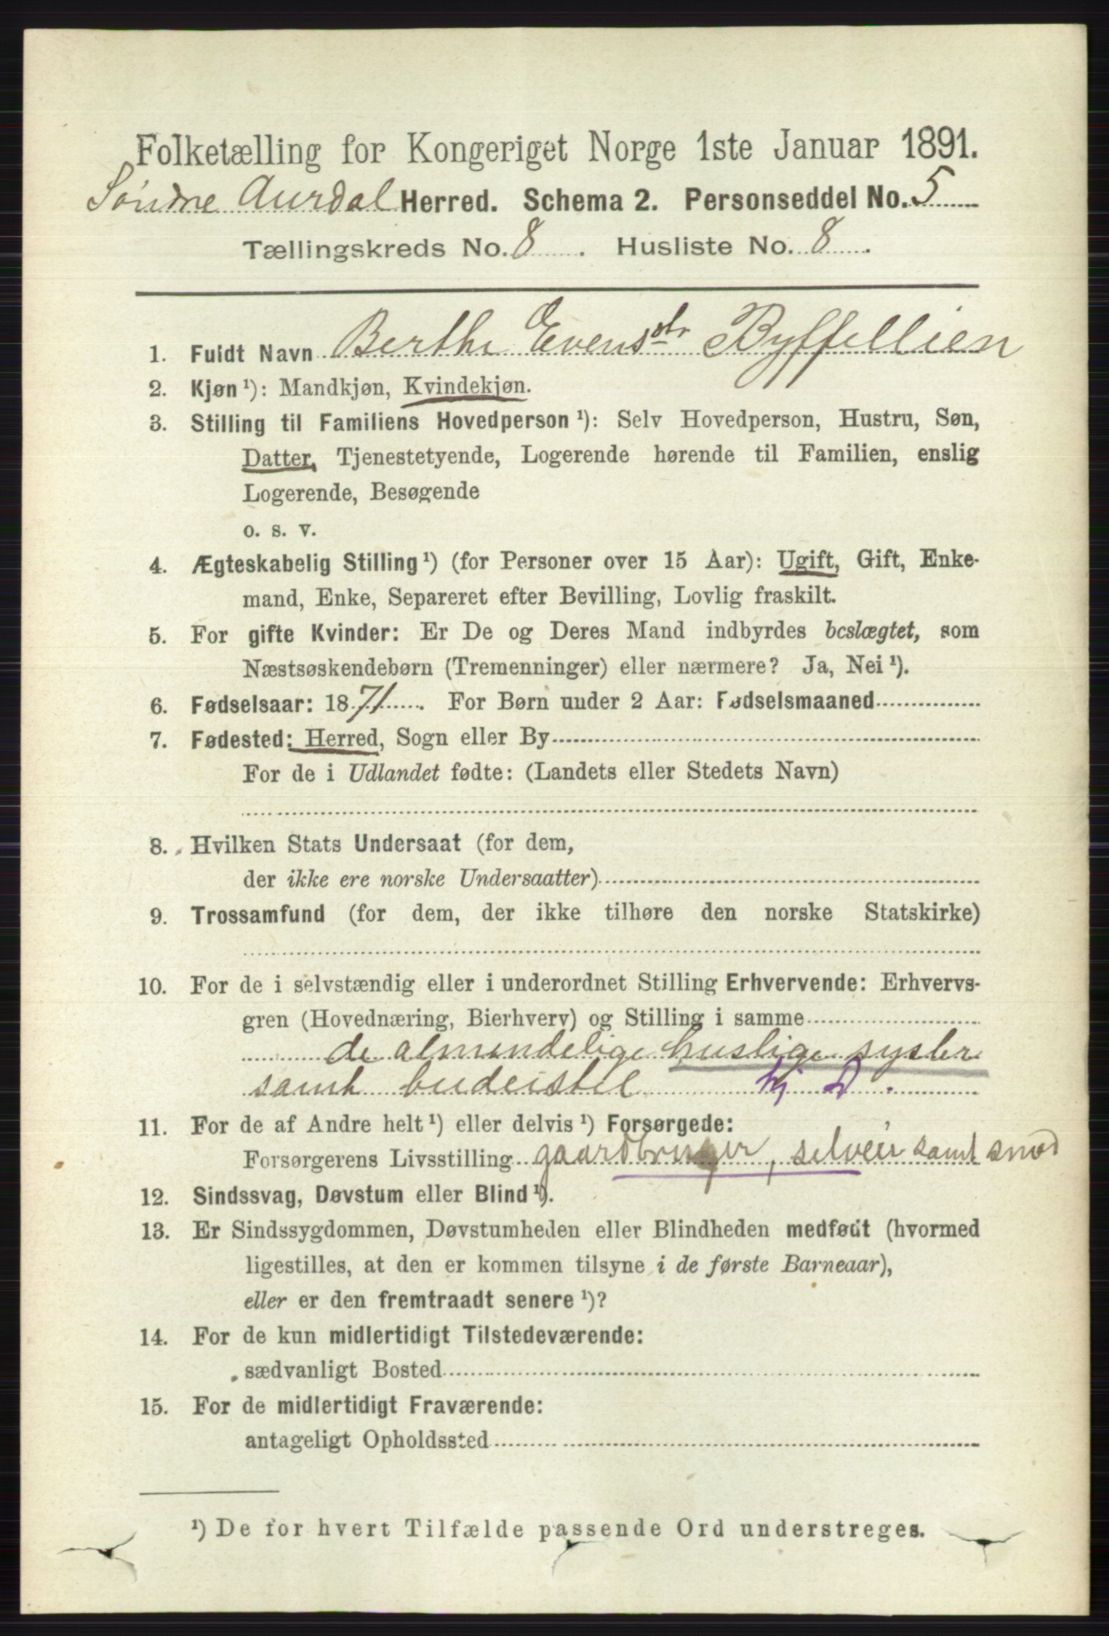 Folketælling for Kongeriget Norge 1ste Januar 1891.
Søndre Aurdal Herred. Schema 2. Personseddel No. 5
Tællingskreds No. 8. Husliste No. 8.
1. Fuldt Navn Berthe Evensdtr Byffellien
2. Kjøn ¹): Mandkjøn, Kvindekjøn.
3. Stilling til Familiens Hovedperson ¹): Selv Hovedperson, Hustru, Søn,
Datter, Tjenestetyende, Logerende hørende til Familien, enslig
Logerende, Besøgende
o. s. v.
4. Ægteskabelig Stilling ¹) (for Personer over 15 Aar): Ugift, Gift, Enke-
mand, Enke, Separeret efter Bevilling, Lovlig fraskilt.
5. For gifte Kvinder: Er De og Deres Mand indbyrdes beslægtet, som
Næstsøskendebørn (Tremenninger) eller nærmere? Ja, Nei ¹).
6. Fødselsaar: 1871. For Børn under 2 Aar: Fødselsmaaned
7. Fødested: Herred, Sogn eller By
For de i Udlandet fødte: (Landets eller Stedets Navn)
8. Hvilken Stats Undersaat (for dem,
der ikke ere norske Undersaatter)
9. Trossamfund (for dem, der ikke tilhøre den norske Statskirke)
10. For de i selvstændig eller i underordnet Stilling Erhvervende: Erhvervs-
gren (Hovednæring, Bierhverv) og Stilling i samme
de almindelige huslige sysler
samt budeistel tj D.
11. For de af Andre helt ¹) eller delvis ¹) Forsørgede:
Forsørgerens Livsstilling gaardbruger, selveier samt smed
12. Sindssvag, Døvstum eller Blind ¹).
13. Er Sindssygdommen, Døvstumheden eller Blindheden medfødt (hvormed
ligestilles, at den er kommen tilsyne i de første Barneaar),
eller er den fremtraadt senere ¹)?
14. For de kun midlertidigt Tilstedeværende:
sædvanligt Bosted
15. For de midlertidigt Fraværende:
antageligt Opholdssted
¹) De for hvert Tilfælde passende Ord understreges.